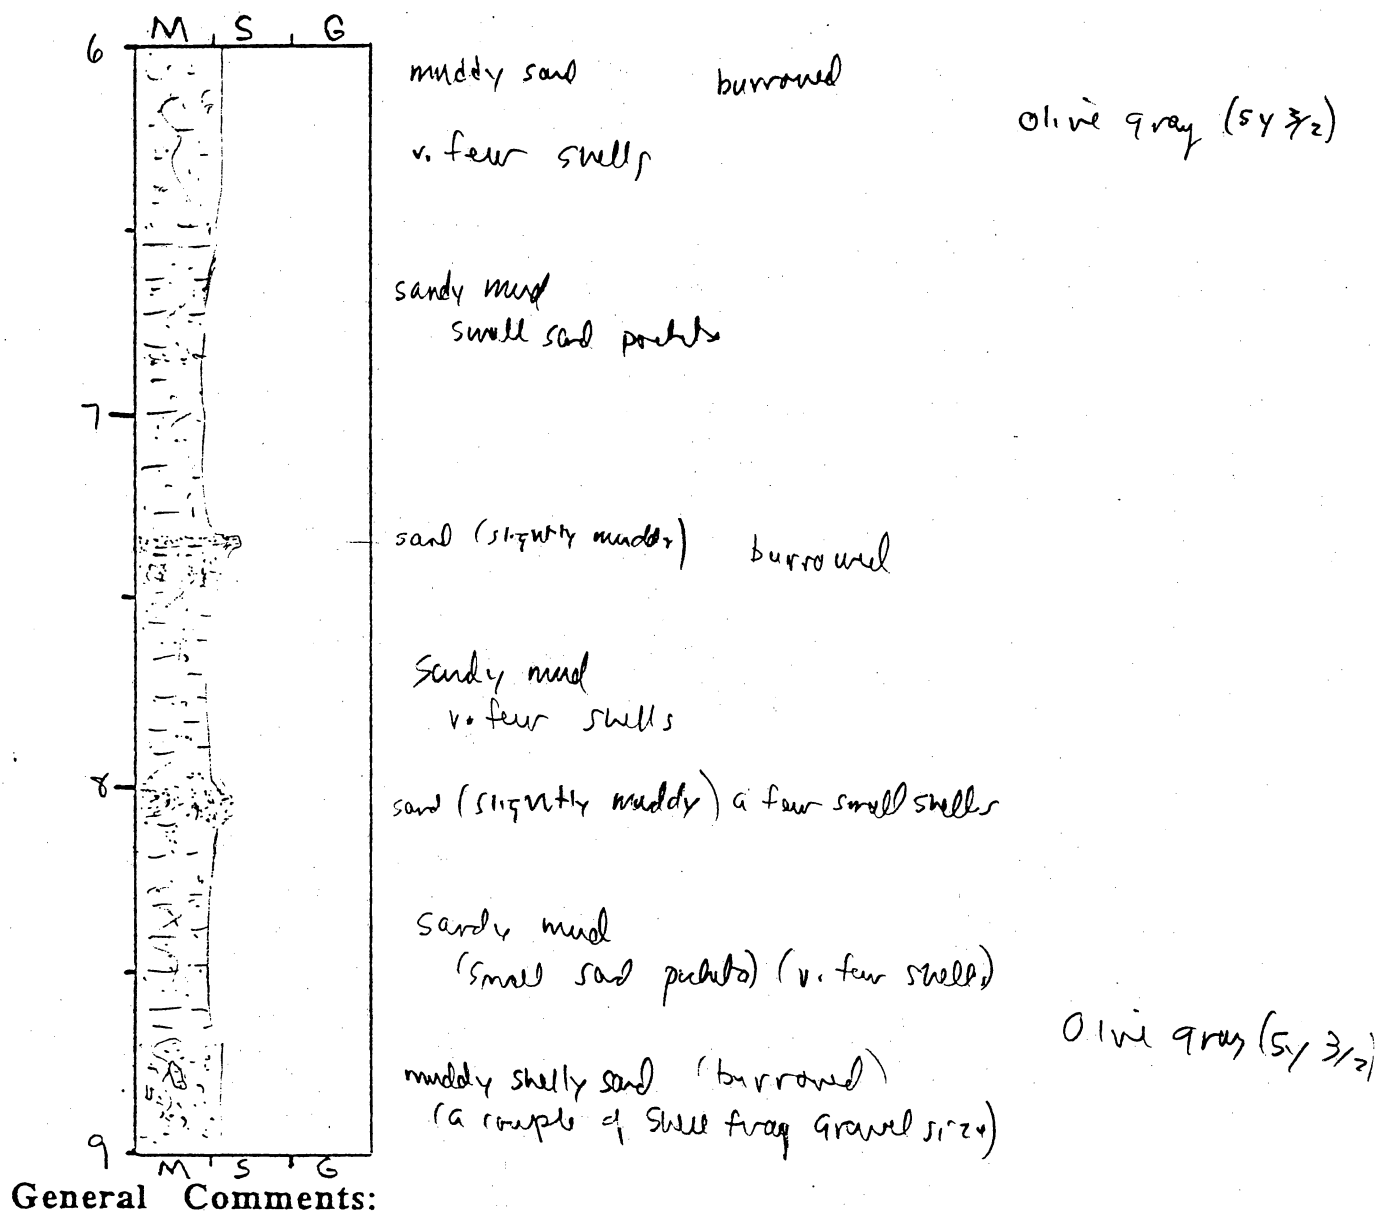 M S G
6
muddy sand burrowed
Olive gray (5Y 3/2)
v. few shells
sandy mud
small sand pockets
7
sand (slightly muddy) burrowed
Sandy mud
v. few shells
8
sand (slightly muddy) a few small shells
Sandy mud
(small sand pockets) (v. few shells)
Olive gray (5Y 3/2)
muddy shelly sand (burrowed)
(a couple of shell frag gravel size)
9
M S G
General Comments: